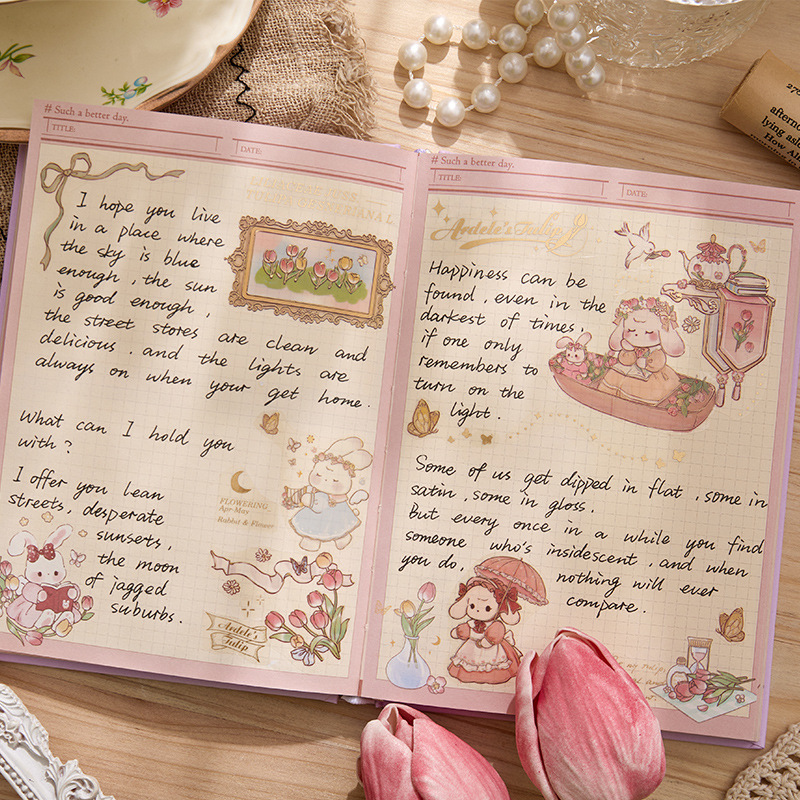 # Such a better day.
TITLE:
DATE:
I hope you live
in a place where
the sky is blue
enough, the sun
is good enough,
the street stores are clean and
delicious. and the lights are
always on when your get home.
What can I hold you
with?
I offer you lean
streets, desperate
sunsets,
the moon
of jagged
suburbs.
FLOWERING
Apr-May
Rabbit & Flower
Ardele's
Tulip
# Such a better day.
TITLE:
DATE:
Ardele's Tulip
Happiness can be
found, even in the
darkest of times,
if one only
remembers to
turn on the
light.
Some of us get dipped in flat, some in
satin, some in gloss.
But every once in a while you find
someone who's insidescent, and when
you do, nothing will ever
compare.
afternoon
lying asl